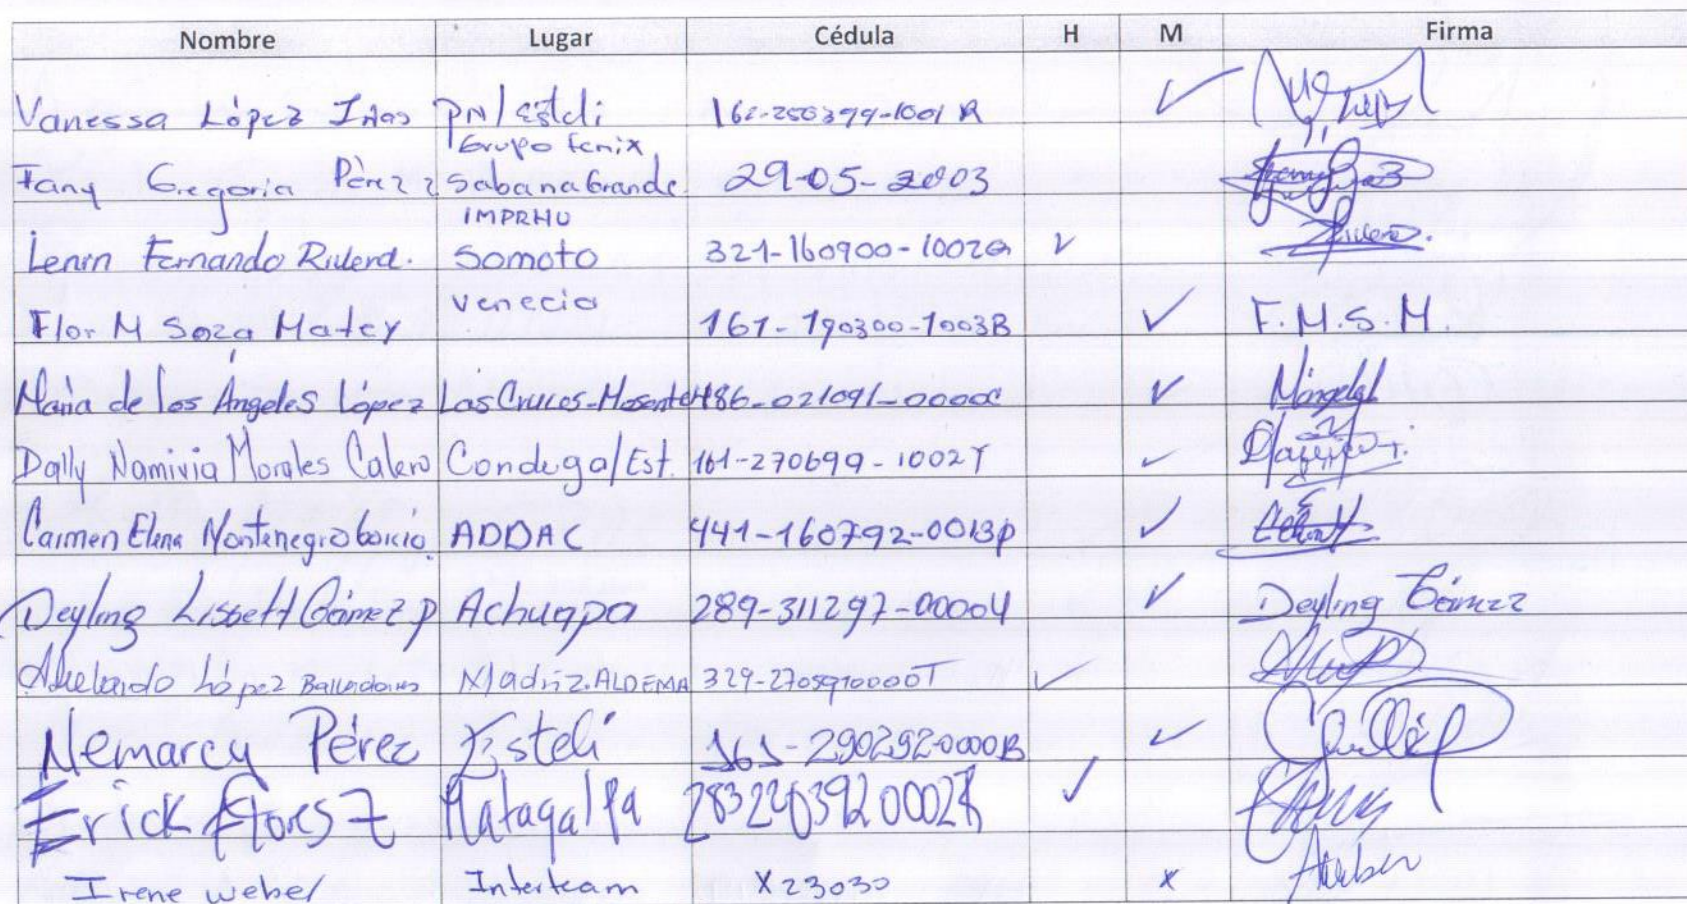 Nombre Lugar Cédula H M Firma
Vanessa López PN/Estelí 161-250399-1001 R ✓
Grupo fenix
Fany Gregoria Pérez z Sabana Grande 29-05-2003
IMPRHU
Lenin Fernando Rivera. Somoto 321-160900-1002G ✓ Rivera.
Venecia
Flor M Soza Matey 161-190300-1003B ✓ F.M.S.M.
María de los Ángeles López Las Cruces-Mosonte 486-021091-0000C ✓
Dally Namivia Morales Calero Condega/Est. 161-270699-1002Y ✓
Carmen Elena Montenegro ADDAC 441-160792-0013P ✓
Deyling Lissett Gámez P Achuapa 289-311297-0000U ✓ Deyling Gámez
López Madriz.ALDEMA 329-2705910000T ✓
Nemarcy Pérez Estelí 161-290292-0000B ✓
Erick Flores Z Matagalpa ✓
Irene Weber Interteam X23030 X AWeber